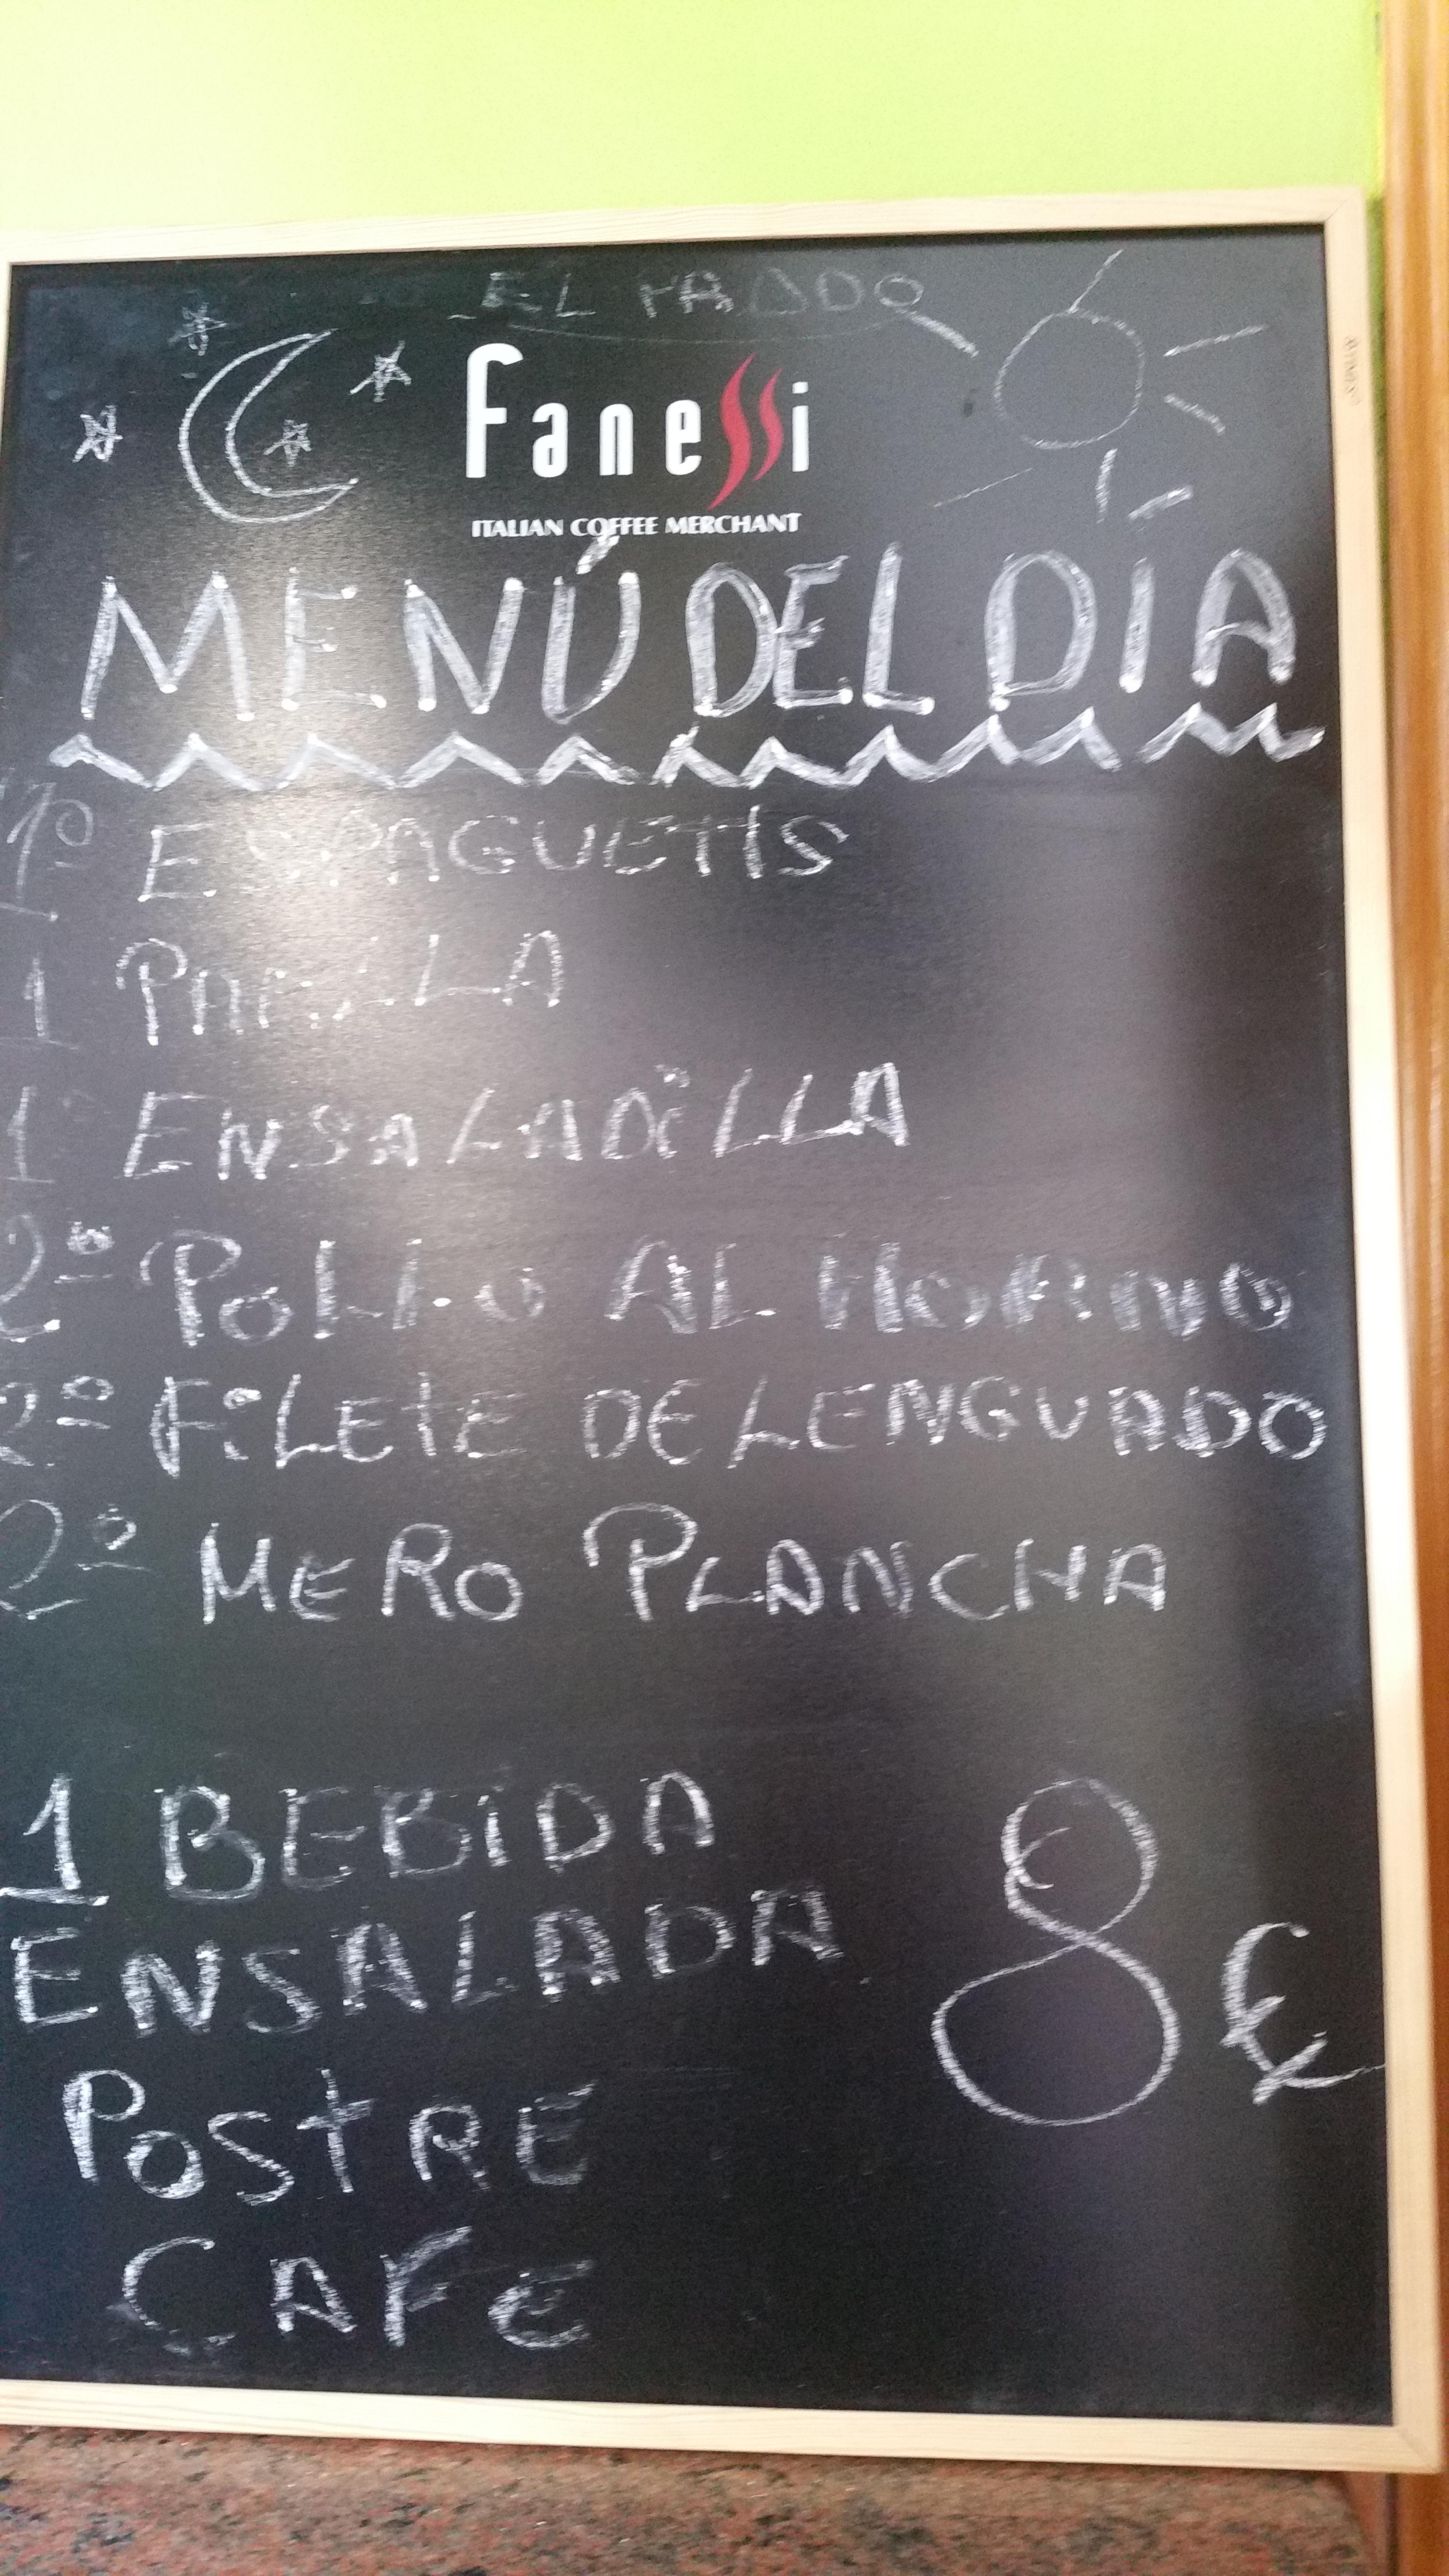 EL PRADO
Fanessi
ITALIAN COFFEE MERCHANT
MENÚ DEL DÍA
1º ESPAGUETIS
1
1º ENSALADILLA
2º POLLO AL HORNO
2º FILETE DE LENGUADO
2º MERO PLANCHA
1 BEBIDA
ENSALADA
8 €
POSTRE
CAFE